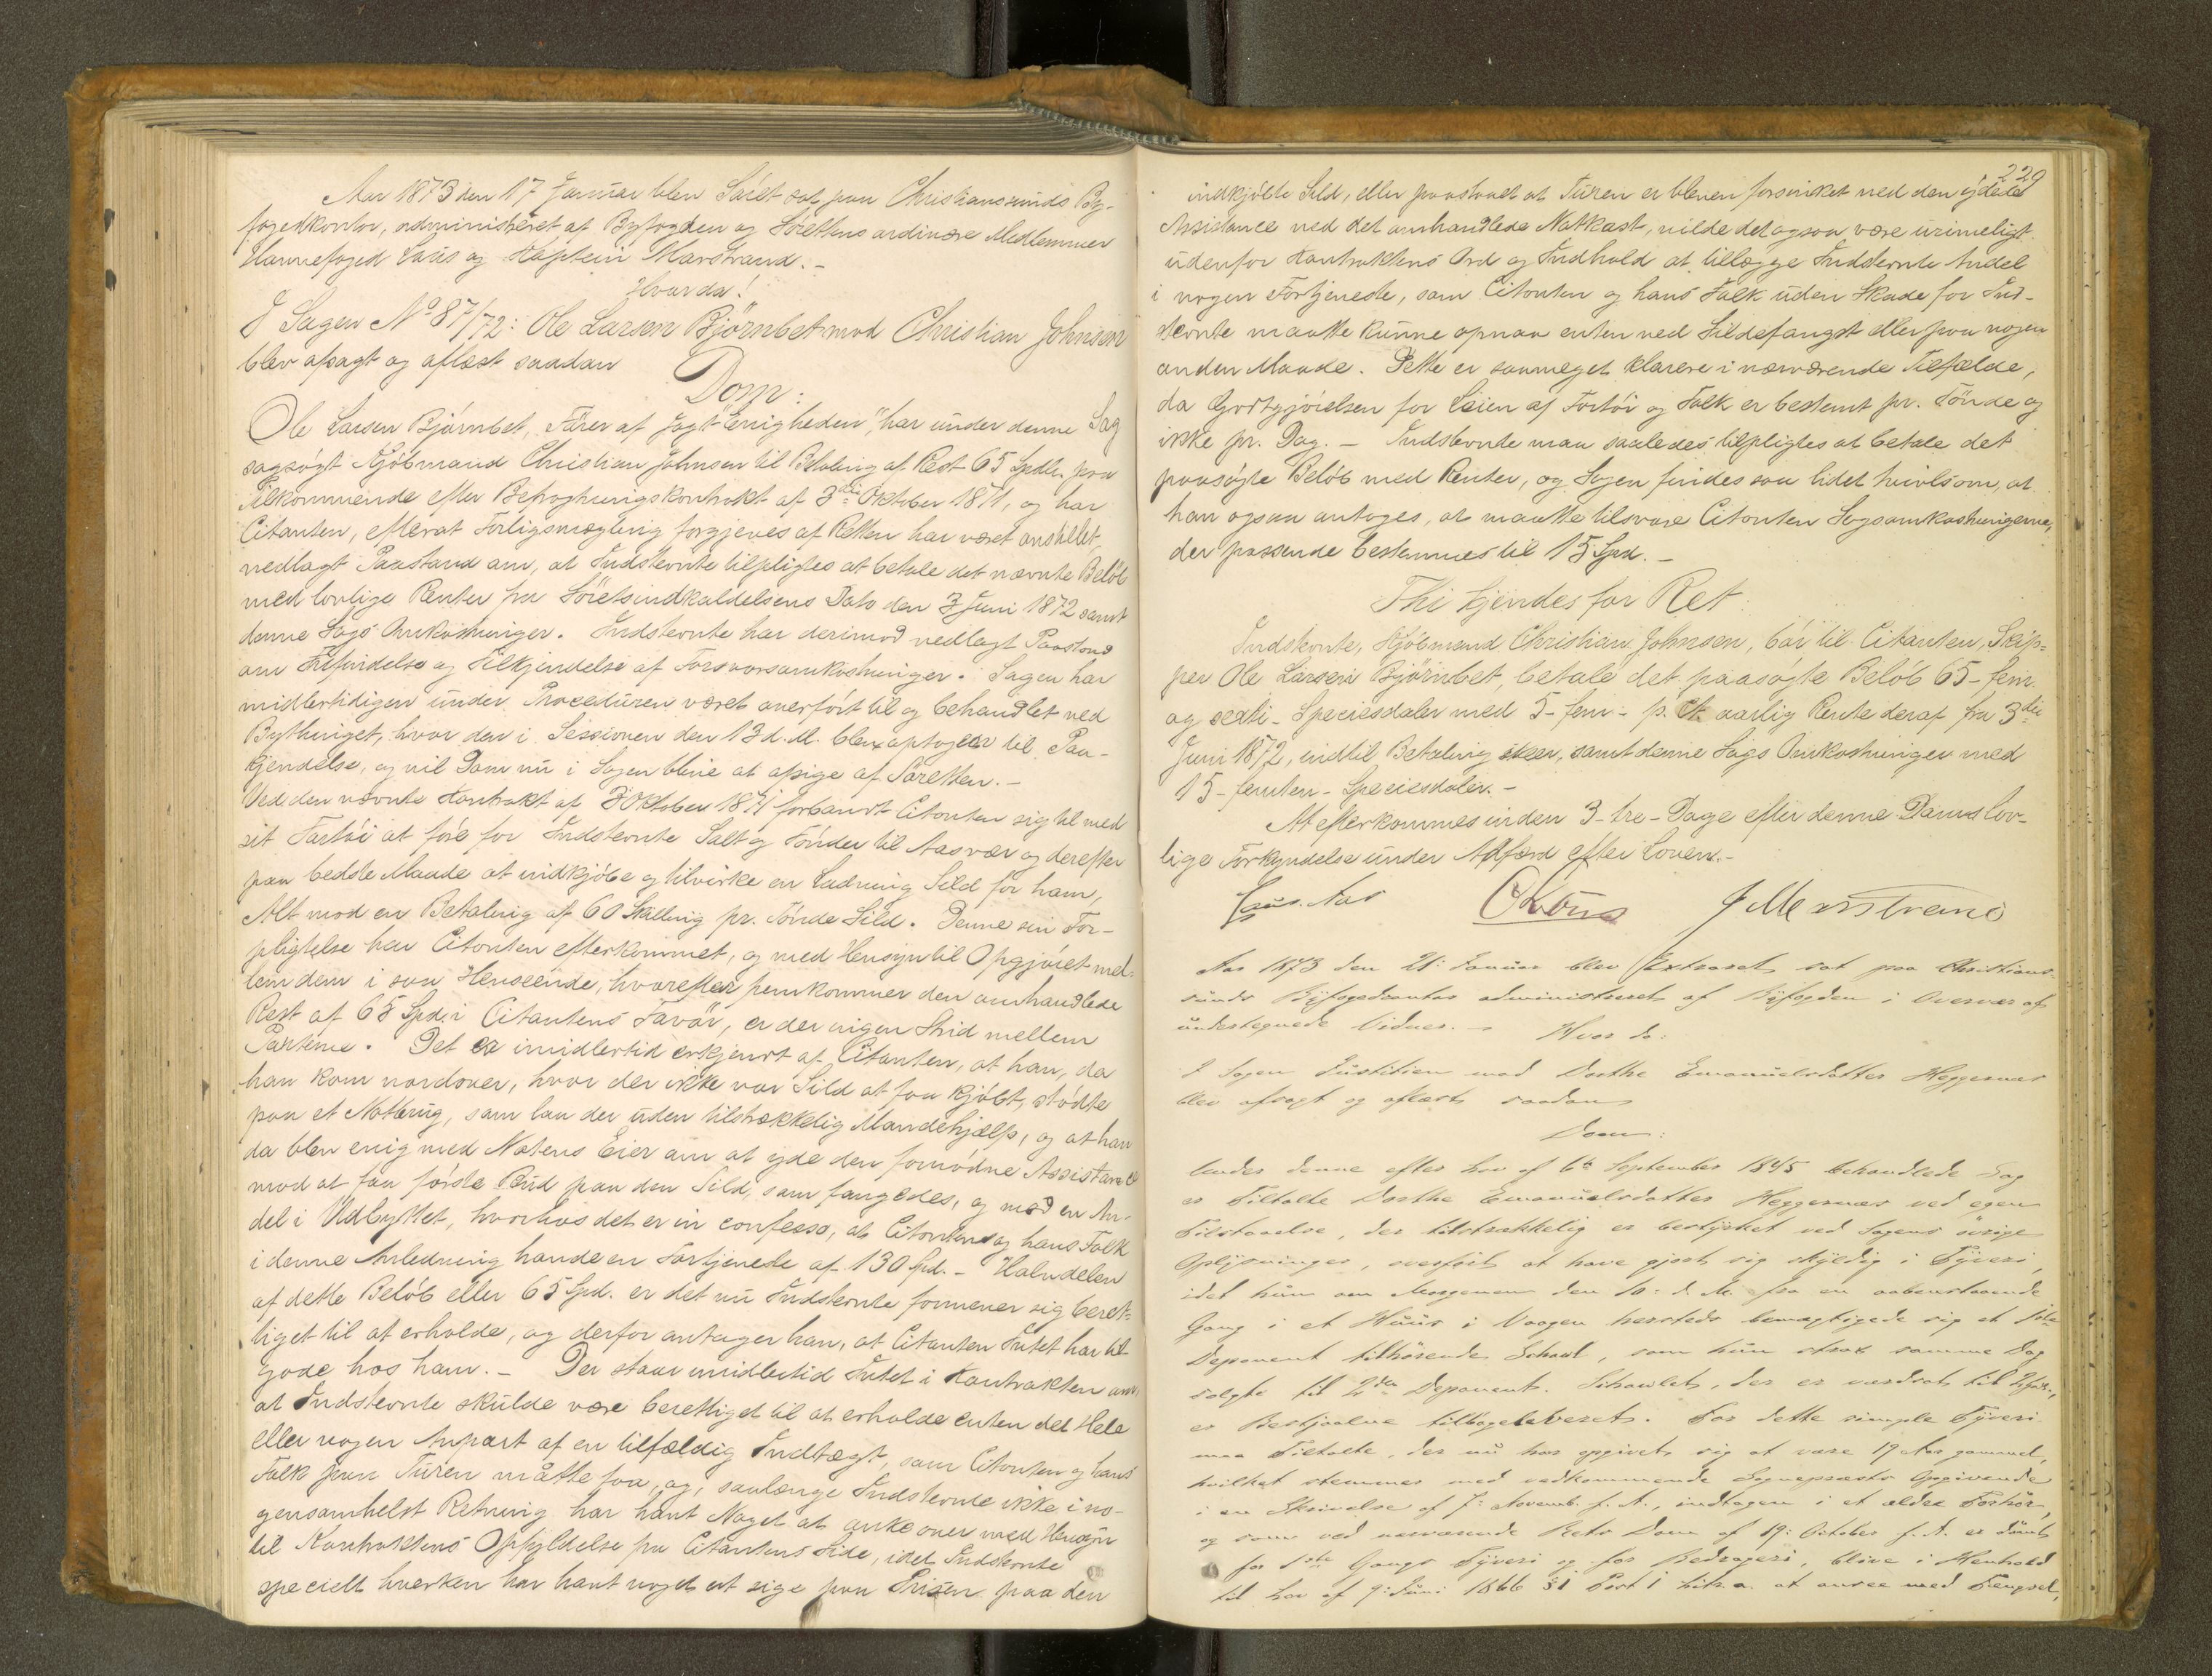 Aar 1873 den 17 Januar blev Söret sat paa Christianssunds By-
fogedkontor, administreret af Byfogden og Sörettens ordinære Medlemmer
Havnefoged Lous og Kaptein Marstrand. -
Hvorda!
I Sagen No 87/72: Ole Larsen Björnbet mod Christian Johnsen
blev afsagt og aflæst saadan
Dom:
Ole Larsen Björnbet, Förer af Jagt "Enigheden", har under denne Sag
sagsögt Kjöbmand Christian Johnsen til Betaling af Rest 65 Spdlr. paa
Tilkommende efter Befragtningskontrakt af 3die Oktober 1871, og har
Citanten, efterat Forligsmægling forgjeves af Retten har været anstillet,
nedlagt Paastand om, at Indstevnte tilpligtes at betale det nævnte Belöb
med lovlige Renter fra Söretsindkaldelsens Dato den 3 Juni 1872 samt
denne Sags Omkostninger. Indstevnte har derimod nedlagt Paastand
om Frifindelse og Tilkjendelse af Forsvarsomkostninger. Sagen har
midlertidigen under Proceduren været overfört til og behandlet ved
Bythinget, hvor den i Sessionen den 13 d. M. blev optagen til Paa-
kjendelse, og vil Dom nu i Sagen blive at afsige af Söretten. -
Ved den nævnte Kontrakt af 3 Oktober 1871 forbandt Citanten sig til med
sit Fartöi at före for Indstevnte Salt og Tönder til Aasvær og derefter
paa bedste Maade at indkjöbe og tilvirke en Ladning Sild for ham,
Alt mod en Betaling af 60 Skilling pr. Tönde Sild. Denne sin For-
pligtelse har Citanten efterkommet, og med Hensyn til Opgjöret mel-
lem dem i saa Henseende, hvorefter fremkommer den omhandlede
Rest af 65 Spd. i Citantens Favör, er der ingen Strid mellem
Parterne. Det er imidlertid erkjendt af Citanten, at han, da
han kom nordover, hvor der ikke var Sild at faa kjöbt, stödte
paa et Notbrug, som laa der uden tilstrækkelig Mandehjælp, og at han
da blev enig med Notens Eier om at yde den fornödne Assistance
mod at faa förste Bud paa den Sild, som fangedes, og mod en An-
del i Udbyttet, hvorhos det er in confesso, at Citanten og hans Folk
i denne Anledning havde en Fortjeneste af 130 Spd. - Halvdelen
af dette Belöb eller 65 Spd. er det nu Indstevnte formener sig beret-
tiget til at erholde, og derfor antager han, at Citanten Intet har til-
gode hos ham. - Der staar imidlertid Intet i Kontrakten om,
at Indstevnte skulde være berettiget til at erholde enten det Hele
eller nogen Anpart af en tilfældig Indtægt, som Citanten og hans
Folk paa Turen måtte faa, og, saalænge Indstevnte ikke i no-
gensomhelst Retning har havt Noget at anke over med Hensyn
til Kontraktens Opfyldelse fra Citantens Side, idet Indstevnte
specielt hverken har havt noget at sige paa Prisen paa den
229
indkjöbte Sild, eller paastaaet at Turen er bleven forsinket ved den ydede
Assistance ved det omhandlede Notkast, vilde det ogsaa være urimeligt
udenfor Kontraktens Ord og Indhold at tillægge Indstevnte Andel
i nogen Fortjeneste, som Citanten og hans Folk uden Skade for Ind-
stevnte maatte kunne opnaa enten ved Sildefangst eller paa nogen
anden Maade. Dette er saameget klarere i nærværende Tilfælde,
da Godtgjörelsen for Leien af Fartöi og Folk er bestemt pr. Tönde og
ikke pr. Dag. - Indstevnte maa saaledes tilpligtes at betale det
paasögte Belöb med Renter, og Sagen findes saa lidet tvivlsom, at
han ogsaa antages, at maatte tilsvare Citanten Sagsomkostningerne,
der passende bestemmes til 15 Spd. -
Thi kjendes for Ret:
Indstevnte, Kjöbmand Christian Johnsen, bör til Citanten, Skip-
per Ole Larsen Björnbet, betale det paasögte Belöb 65 - fem
og sexti - Speciesdaler med 5 - fem - p. Ct. aarlig Rente deraf fra 3die
Juni 1872, indtil Betaling skeer, samt denne Sags Omkostninger med
15 - femten - Speciesdaler. -
At efterkommes inden 3 - tre - Dage efter denne Doms lov-
lige Forkyndelse under Adfærd efter Loven. -
Aas CLous J Marstrand
Aar 1873 den 21. Januar blev Extraret sat paa Christians-
sunds Byfogedcontor administreret af Byfogden i Overvær af
undertegnede Vidner. - Hvor da:
I Sagen Justitien mod Dorthe Emanuelsdatter Heggernæs
blev afsagt og aflæst saadan
Dom:
Under denne efter Lov af 6te September 1845 behandlede Sag
er Tiltalte Dorthe Emanuelsdatter Heggernæs ved egen
Tilstaaelse, der tilstrækkelig er bestyrket ved Sagens övrige
Oplysninger, overfört at have gjort sig skyldig i Tyveri,
idet hun om Morgenen den 10. d. M. fra en aabenstaaende
Gang i et Huus i Vaagen herstede bemægtigede sig et 1ste
Deponent tilhörende Schavl, som hun strax samme Dag
solgte til 2den Deponent. Schavlet, der er værdsat til
er Bestjaalne tilbageleveret. For dette simple Tyveri
maa Tiltalte, der nu har opgivet sig at være 19 Aar gammel,
hvilket stemmer med vedkommende Sognepræsts Opgivende
i en Skrivelse af 7. Novemb. f. A., indtagen i et ældre Forhör,
og som ved nærværende Rets Dom af 19. October f. A. er dömt
for 1ste Gangs Tyveri og for Bedrageri, blive i Henhold
til Lov af 9. Juni 1866 § 1 Post 1 Litr. a. at ansee med Fængsel,